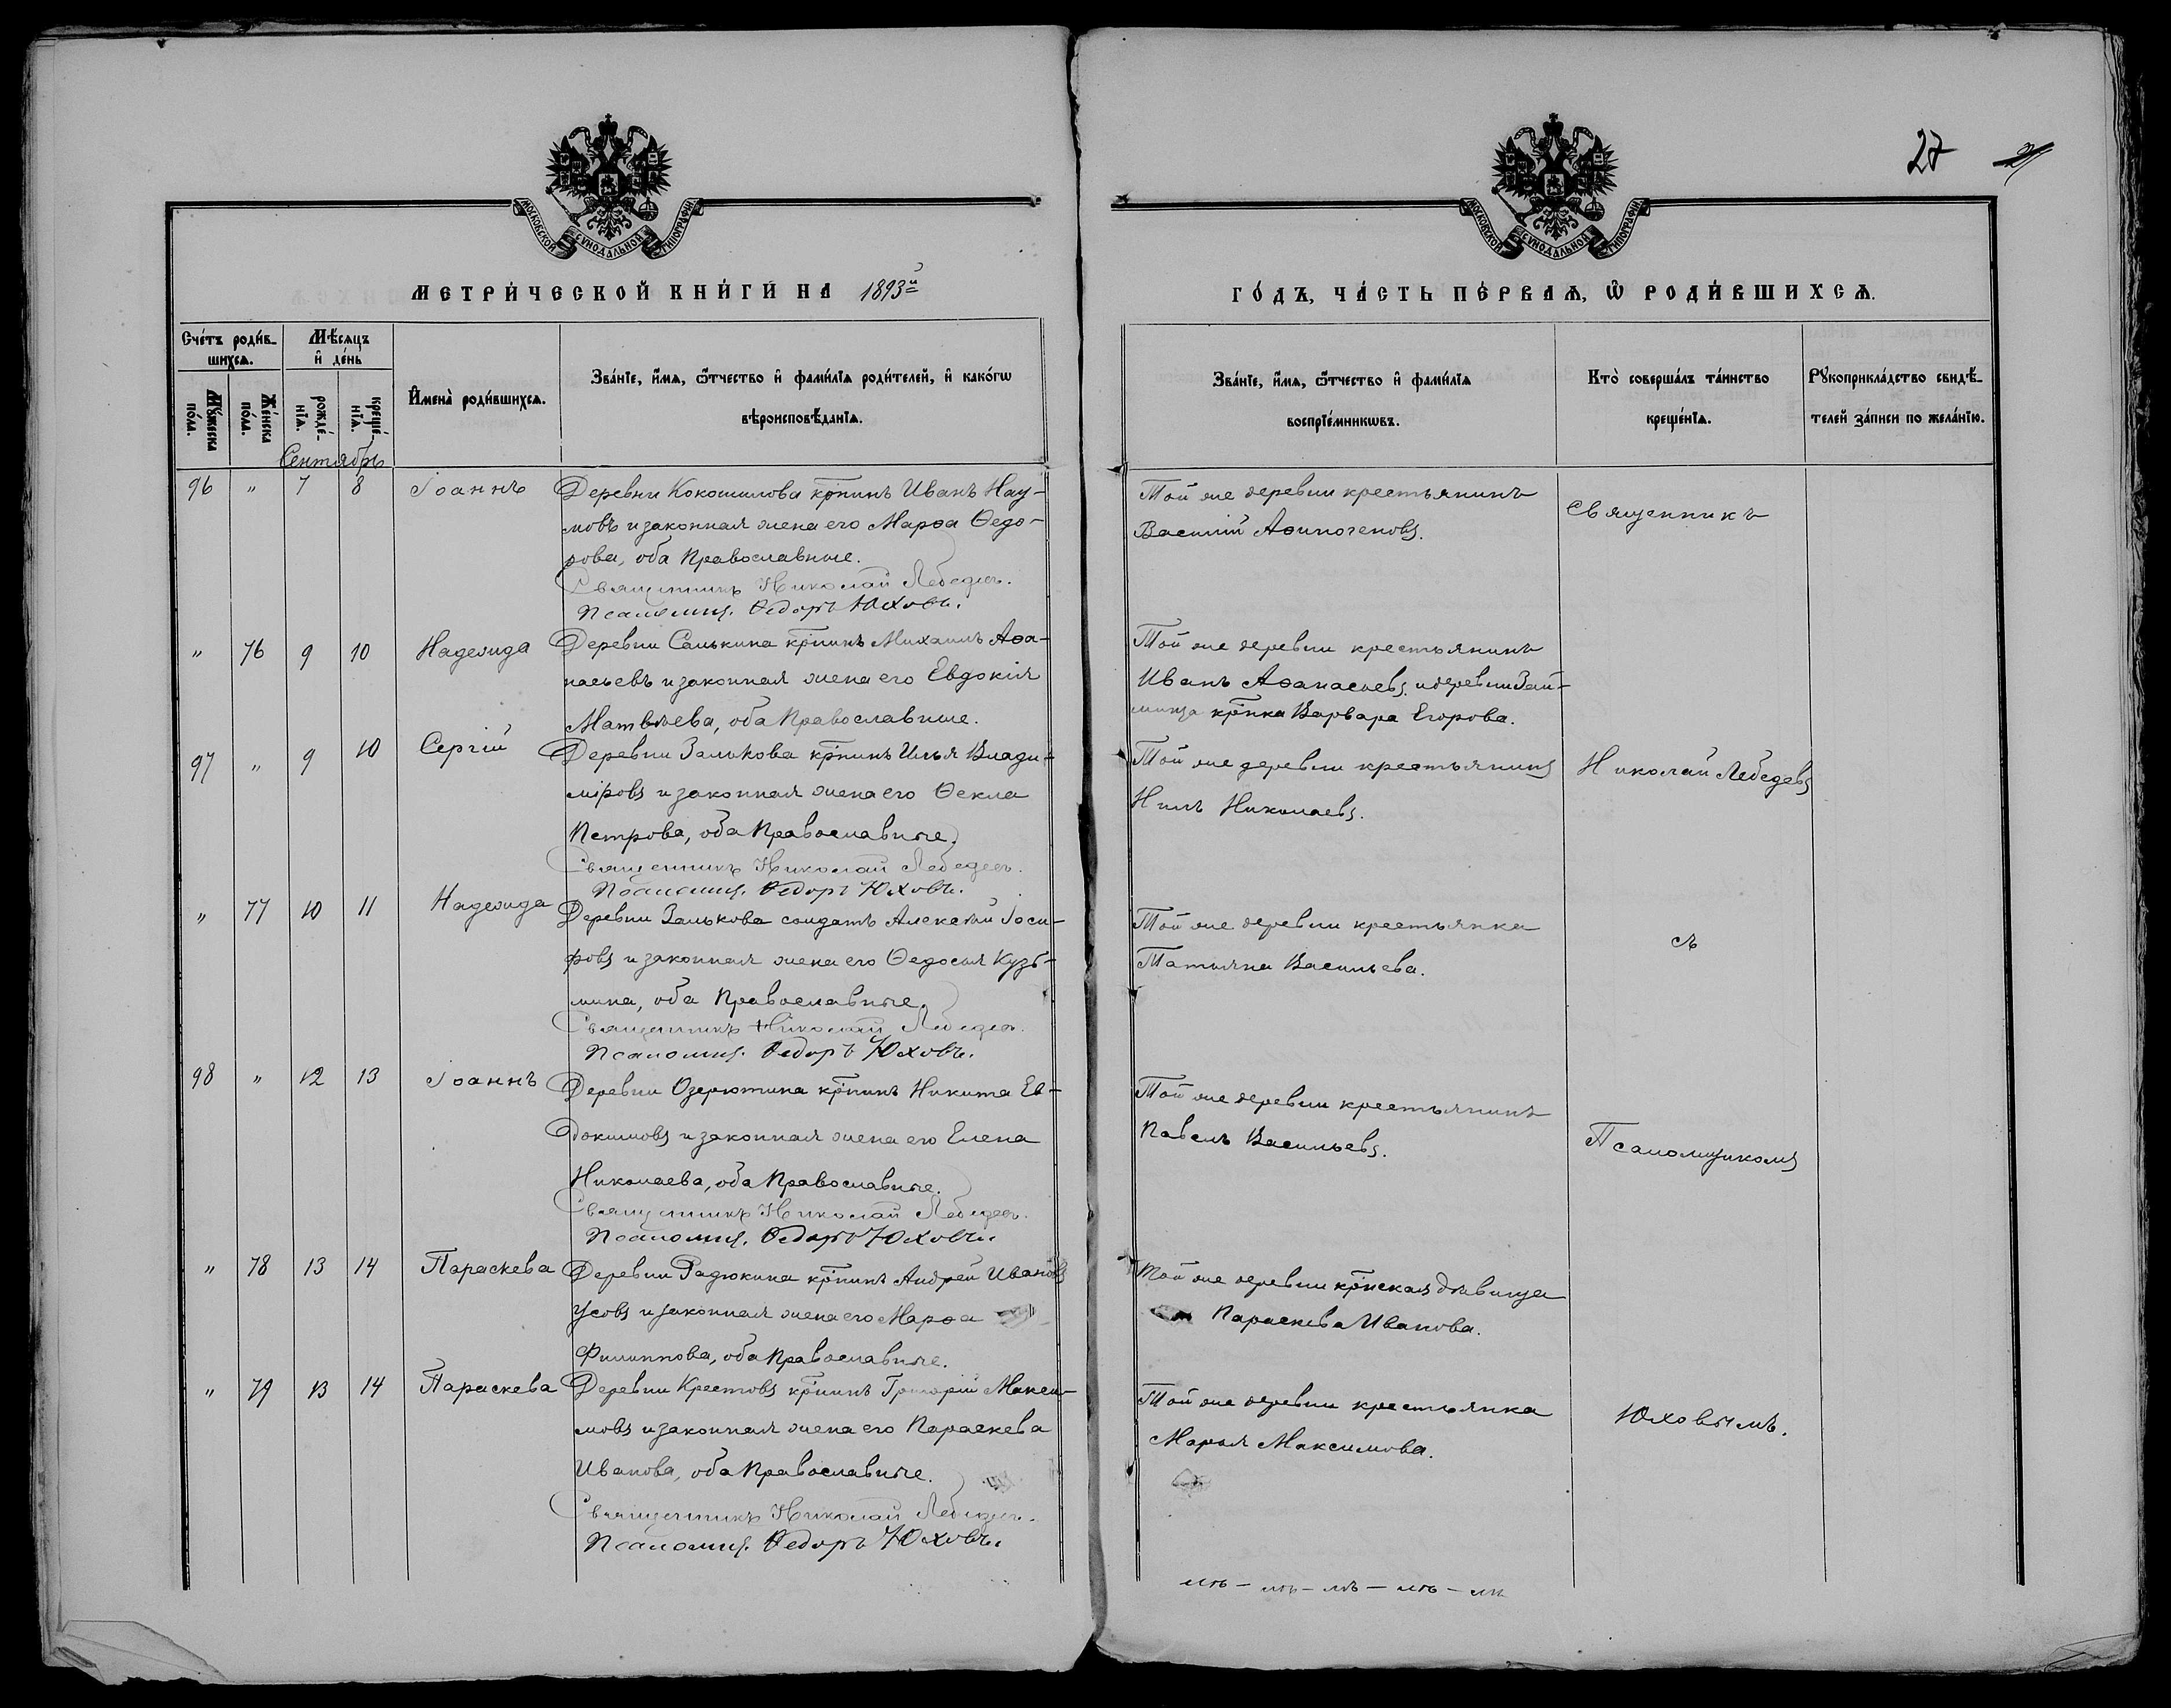 27
МОСКОВСКОЙ СУНОДАЛЬНОЙ ТИПОГРАФІИ
МОСКОВСКОЙ СУНОДАЛЬНОЙ ТИПОГРАФІИ
МЕТРИ́ЧЕСКОЙ КНИ́ГИ НА 1893й
ГО́ДЪ, ЧА́СТЬ ПЕ́РВАѦ, Ѡ҆ РОДИ́ВШИХСѦ.
Сче́тъ роди́в-
шихсѧ.
Мꙋ́жеска по́ла.
Же́нска по́ла.
Мѣ́сяцъ
и҆ де́нь
рожде́-
нїѧ.
креще́-
нїѧ.
И҆мена̀ роди́вшихсѧ.
Зва́нїе, и҆́мѧ, ѻ҆́тчество и҆ фами́лїѧ роди́телей, и҆ како́гѡ
вѣроисповѣ́данїѧ.
Зва́нїе, и҆́мѧ, ѻ҆́тчество и҆ фами́лїѧ
воспрїе́мникѡвъ.
Кто̀ соверша́лъ та́инство
креще́нїѧ.
Рꙋкоприкла́дство свидѣ́-
телей за́писи по жела́нїю.
Сентябрь
96 " 7 8 Іоаннъ
Деревни Кокошилова кр̃нинъ Иванъ Нау-
мовъ и законная жена его Марѳа Ѳедо-
рова, оба Православные.
Священникъ Николай Лебедевъ.
Псаломщ. Ѳедоръ Юховъ.
Той же деревни крестьянинъ
Василій Аѳиногеновъ.
Священникъ
" 76 9 10 Надежда
Деревни Салькина кр̃нинъ Михаилъ Аѳа-
насьевъ и законная жена его Евдокія
Матвѣева, оба Православные.
Той же деревни крестьянинъ
Иванъ Аѳанасьевъ и деревни Зай-
мища кр̃нка Варвара Егорова.
97 " 9 10 Сергій
Деревни Залькова кр̃нинъ Илья Влади-
міровъ и законная жена его Ѳекла
Петрова, оба Православные.
Священникъ Николай Лебедевъ.
Псаломщ. Ѳедоръ Юховъ.
Той же деревни крестьянинъ
Нилъ Николаевъ.
Николай Лебедевъ
" 77 10 11 Надежда
Деревни Залькова солдатъ Алексѣй Іоси-
фовъ и законная жена его Ѳедосья Кузь-
мина, оба Православные.
Священникъ Николай Лебедевъ.
Псаломщ. Ѳедоръ Юховъ.
Той же деревни крестьянка
Татьяна Васильева.
съ
98 " 12 13 Іоаннъ
Деревни Озерютина кр̃нинъ Никита Ев-
докимовъ и законная жена его Елена
Николаева, оба Православные.
Священникъ Николай Лебедевъ.
Псаломщ. Ѳедоръ Юховъ.
Той же деревни крестьянинъ
Павелъ Васильевъ.
Псаломщикомъ
" 78 13 14 Параскева
Деревни Радюкина кр̃нинъ Андрей Ивановъ
Усовъ и законная жена его Марѳа
Филиппова, оба Православные.
Той же деревни кр̃нская дѣвица
Параскева Иванова.
" 79 13 14 Параскева
Деревни Крестовъ кр̃нинъ Григорій Макси-
мовъ и законная жена его Параскева
Иванова, оба Православные.
Священникъ Николай Лебедевъ.
Псаломщ. Ѳедоръ Юховъ.
Той же деревни крестьянка
Марья Максимова.
Юховымъ.